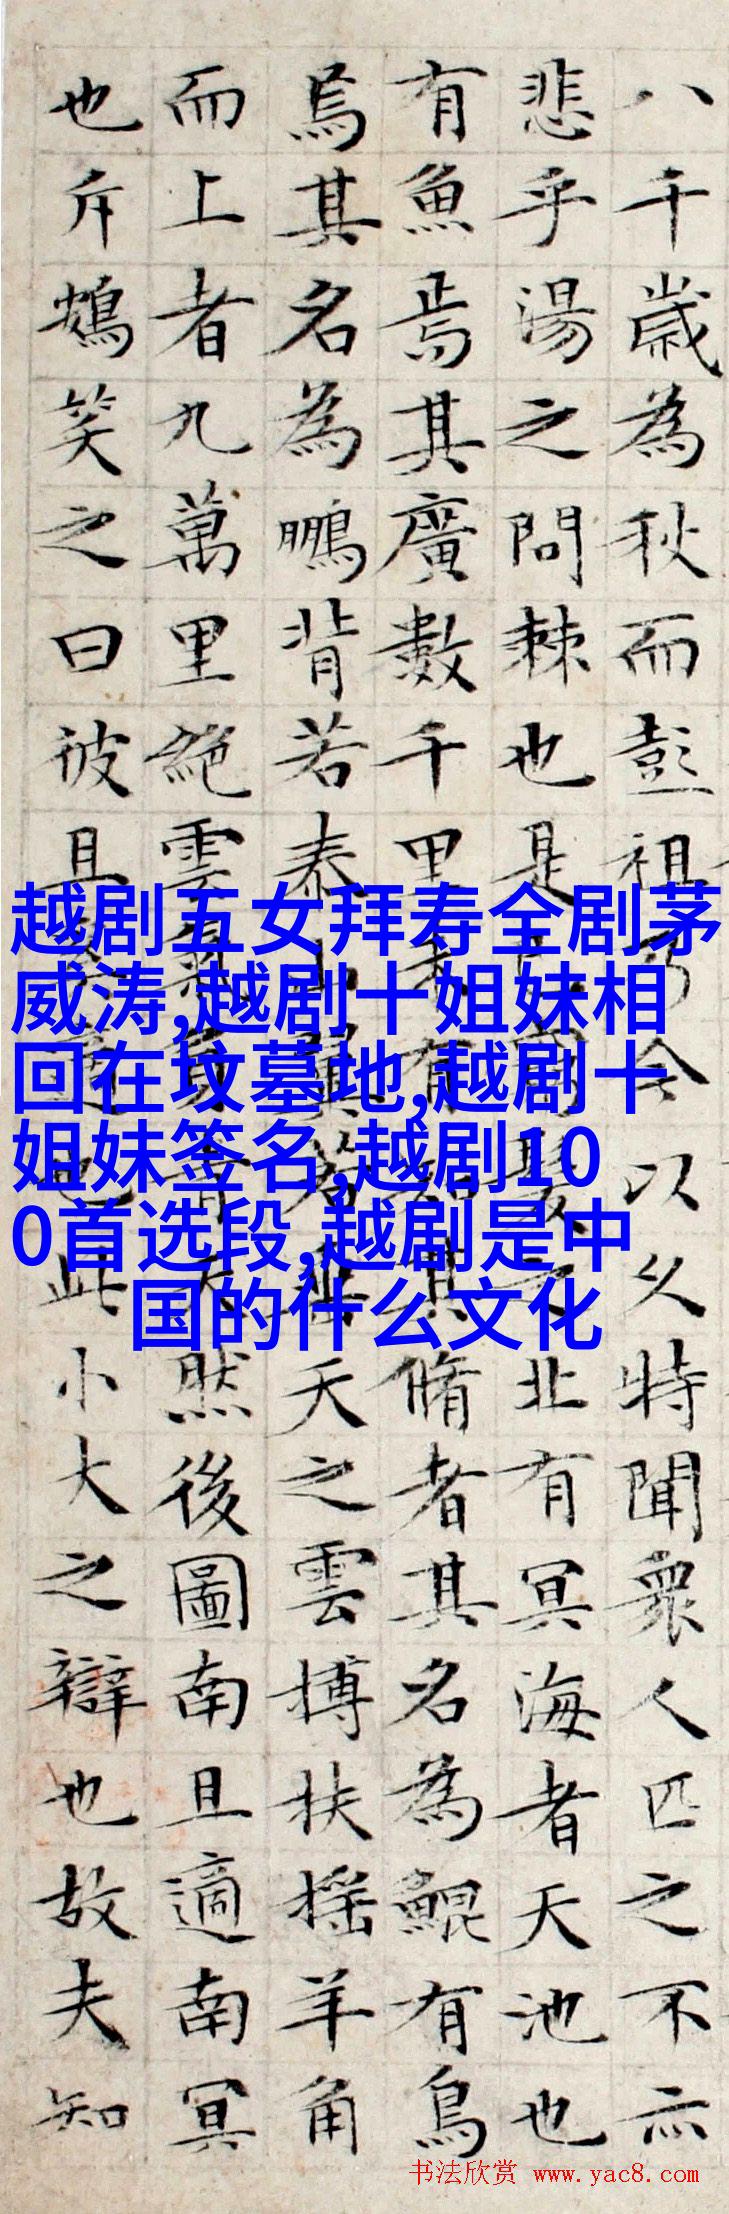 八千歲為秋而彭祖乃今以久特聞衆人匹之不亦
悲乎湯之問棘也是已窮髮之北有冥海者天池也
有魚焉其廣數千里未有知其脩者其名為鯤有鳥
焉其名為鵬背若泰山翼若垂天之雲搏扶搖羊角
而上者九萬里絕雲氣負青天然後圖南且適南冥
也斥鴳笑之曰彼且奚適也此小大之辯也故夫知
越剧五女拜寿全剧茅
威涛,越剧十姐妹相
回在坟墓地,越剧十
姐妹签名,越剧10
0首选段,越剧是中
国的什么文化
书法欣赏 www.yac8.com